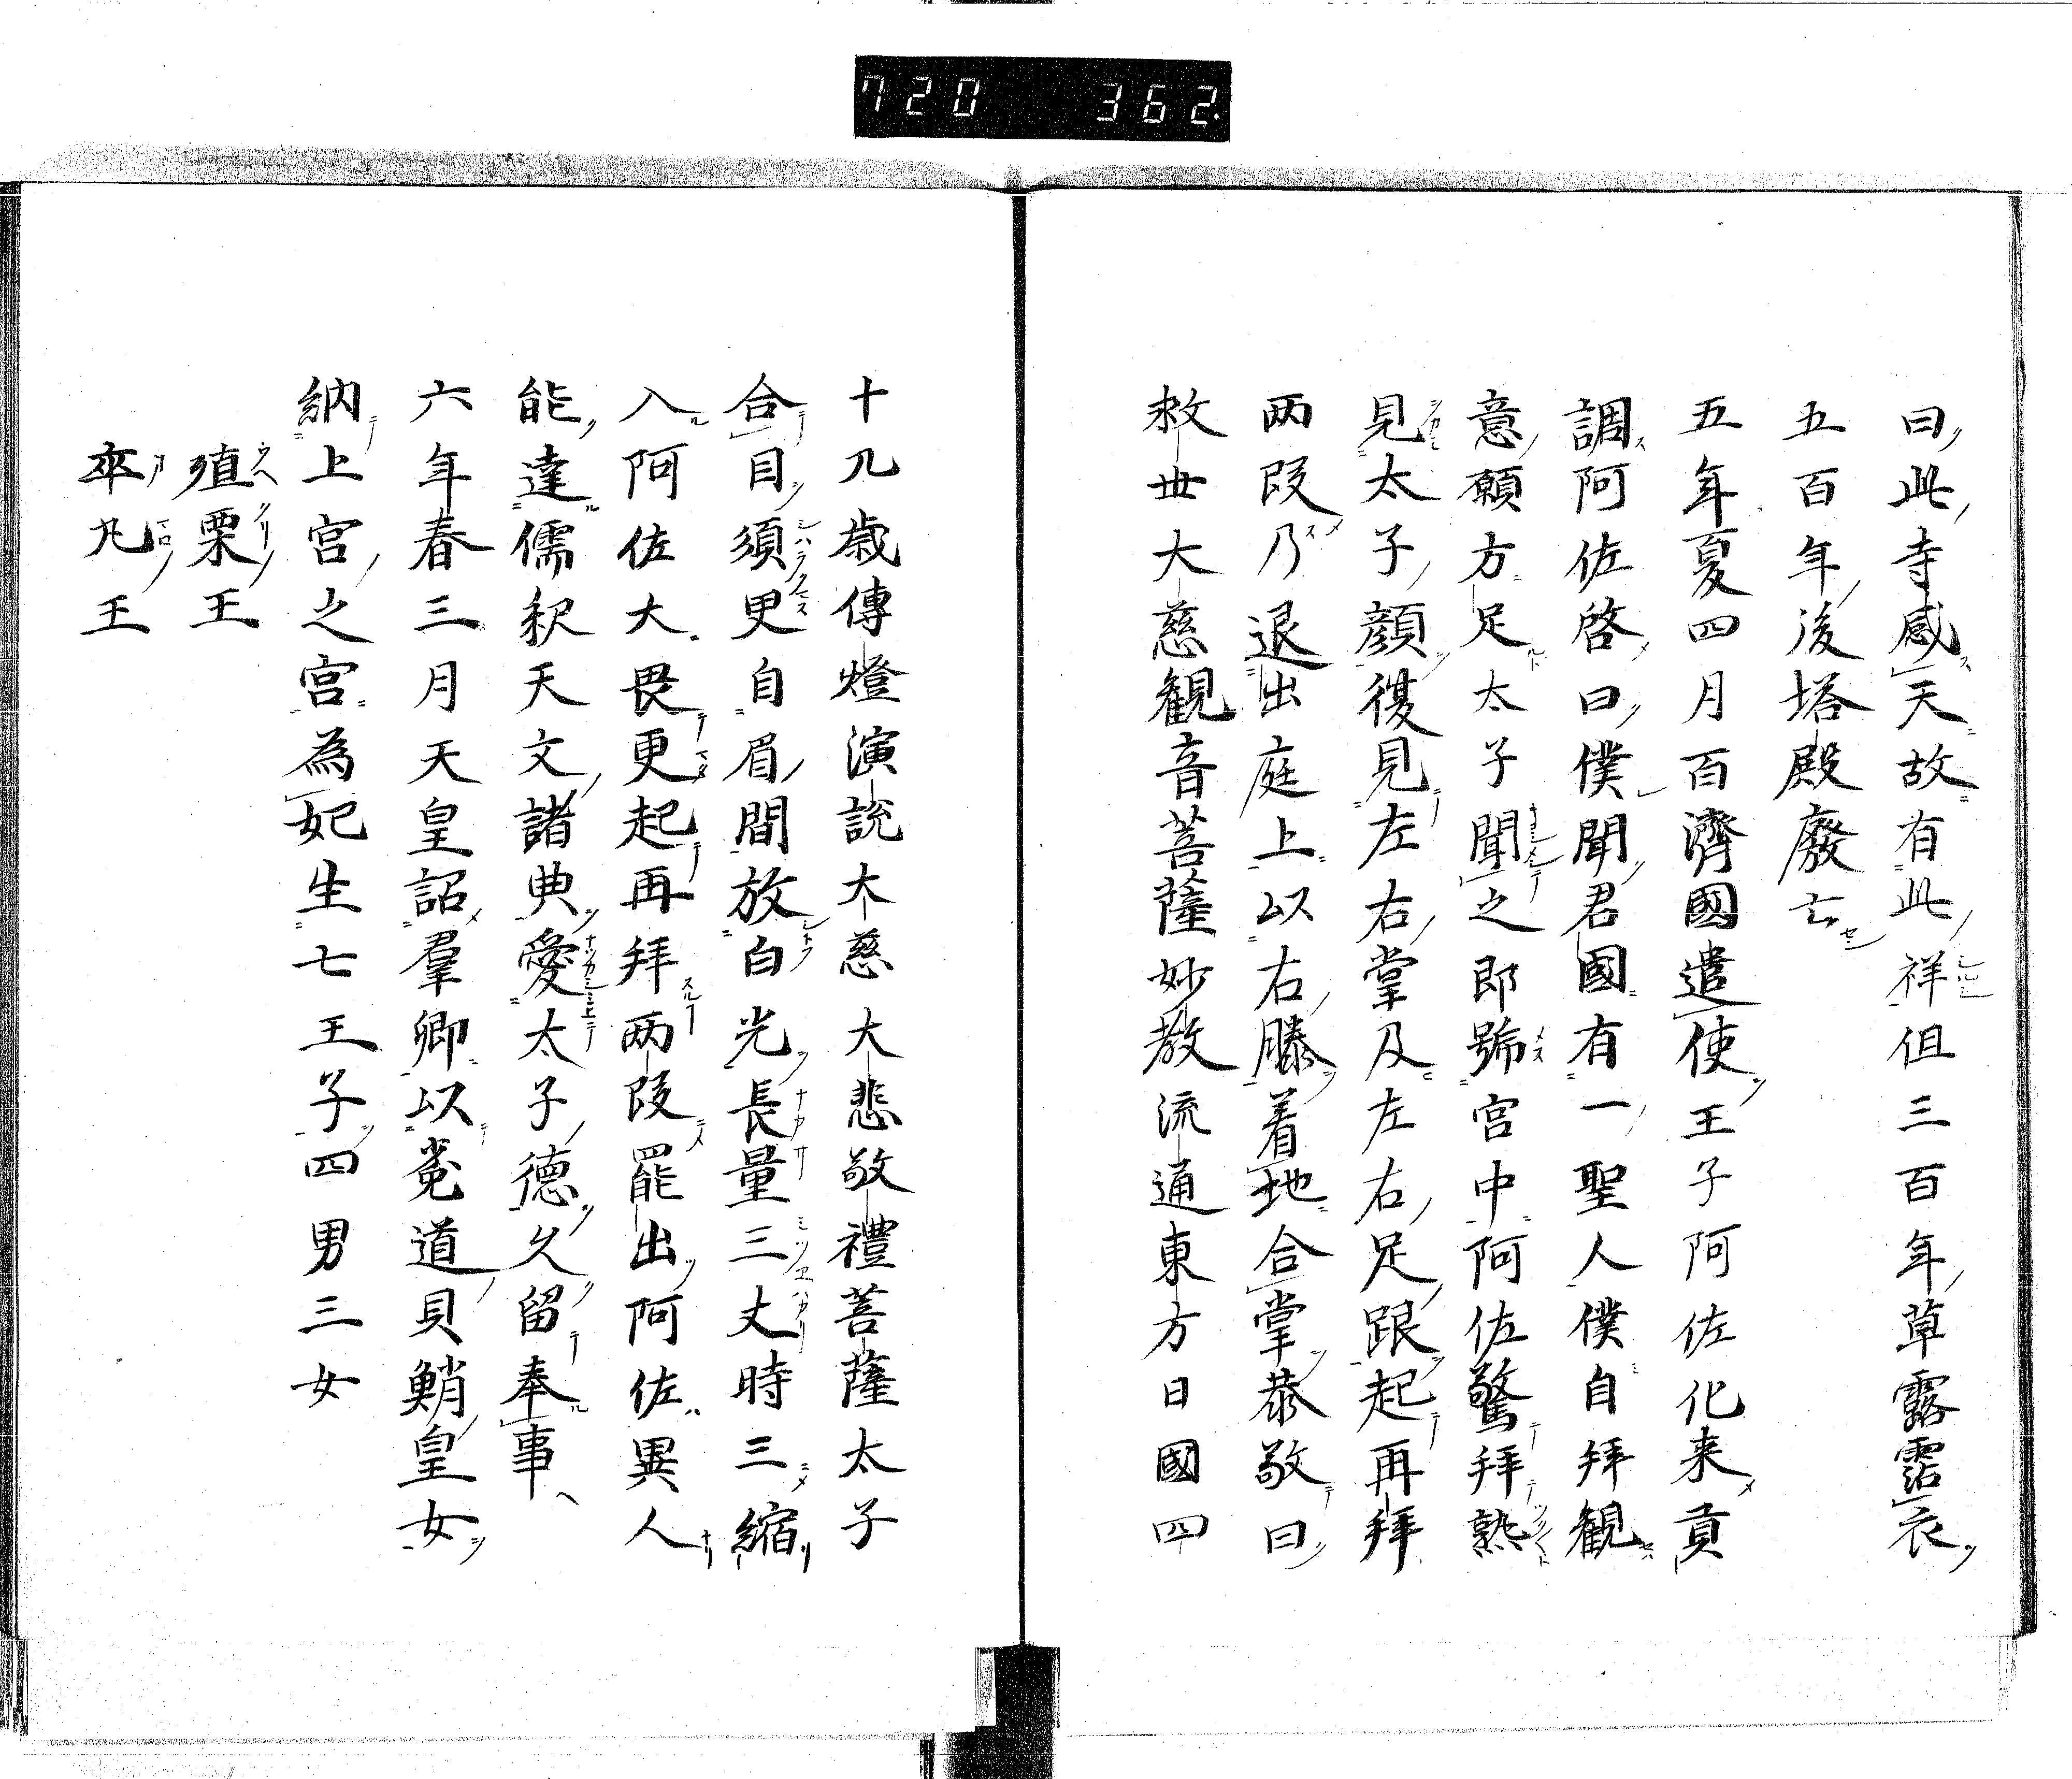 720 362
曰此寺感天故有此祥但三百年草露霑衣
五百年後塔殿廢亡
五年夏四月百濟國遣使王子阿佐化来貢
調阿佐啓曰僕聞君國有一聖人僕自拜観
意願方足太子聞之即歸宮中阿佐驚拜熟
見太子顔復見左右掌及左右足跟起再拜
两段乃退出庭上以右膝着地合掌恭敬曰
救世大慈観音菩薩妙教流通東方日國四
十九歳傳燈演説大慈大悲敬禮菩薩太子
合目須臾自眉間放白光長量三丈時三縮
入阿佐大畏更起再拜两段罷出阿佐異人
能達儒釈天文諸典愛太子德久留奉事
六年春三月天皇詔羣卿以菟道貝鮹皇女
納上宮之宮為妃生七王子四男三女
殖栗王
卒丸王